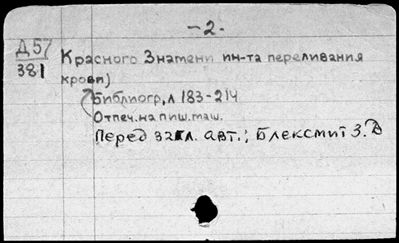 -2-
Д57
381
Красного Знамени ин-та переливания
крови)
Библиогр, л 183-214
Отпеч. на пиш. маш.
Перед загл. авт.: Блексмит З. В